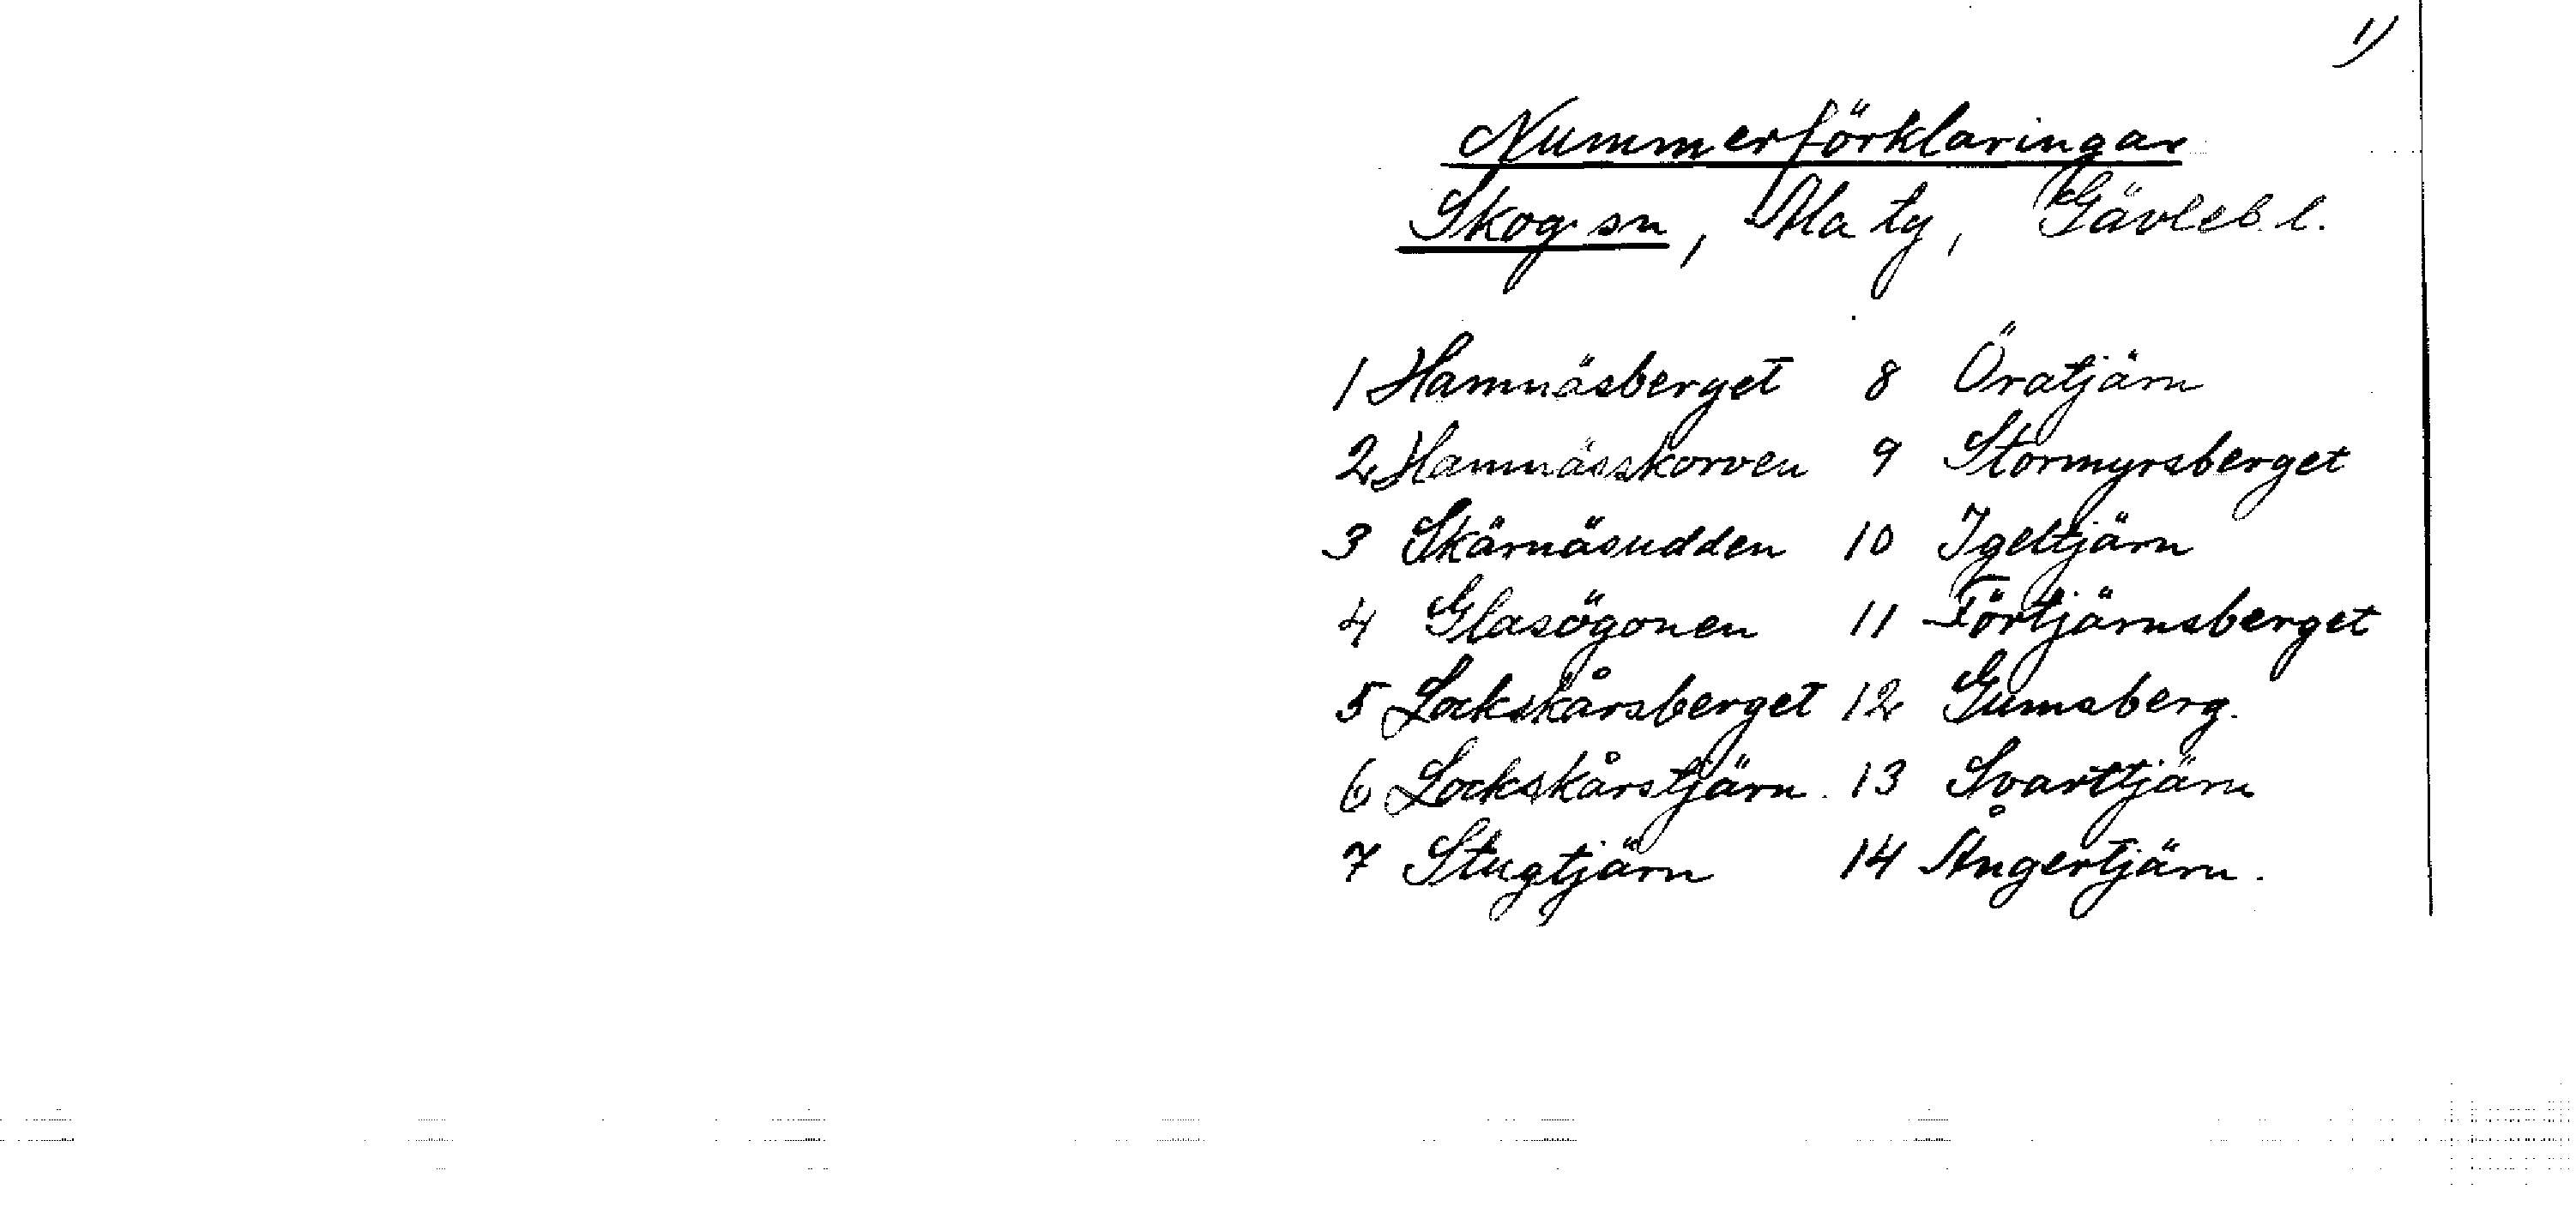 1)
Nummerförklaringar
Skog sn, Ala tg, Gävleb. l.
1 Hamnäsberget 8 Öratjärn
2 Hamnässkorven 9 Stormyrsberget
3 Skärnäsudden 10 Igeltjärn
4 Glasögonen 11 Förtjärnsberget
5 Lockskårsberget 12 Gumsberg.
6 Lockskårstjärn. 13 Svarttjärn
7 Stugtjärn 14 Ångertjärn.